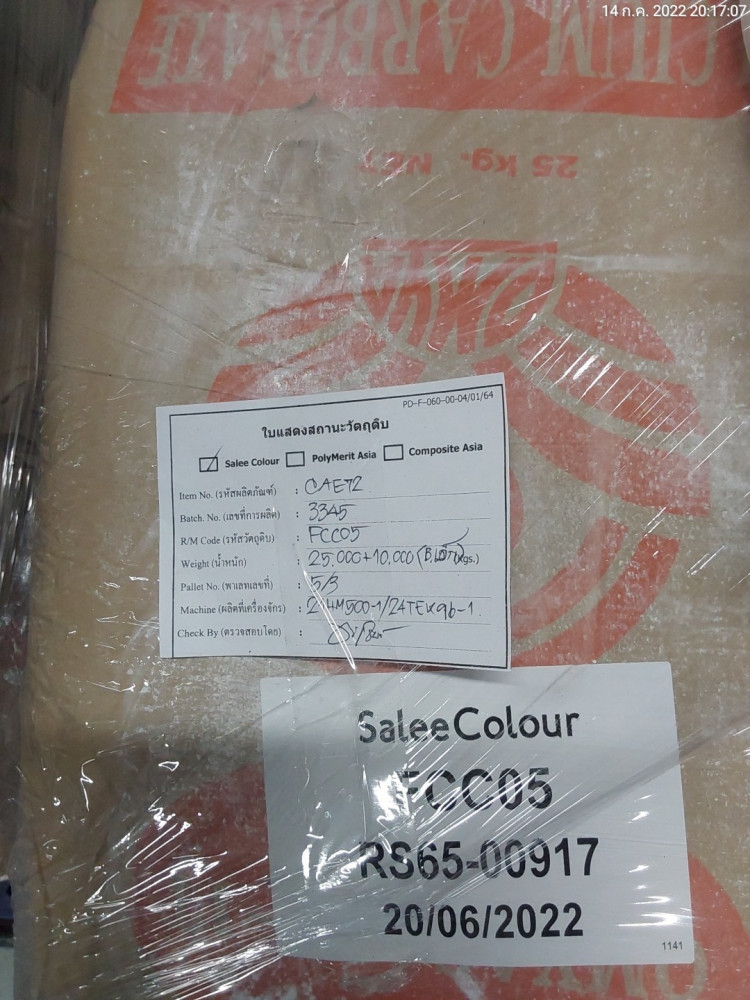 14 ก.ค. 2022 20:17:07
CIUM CARBONATE
25 kg. NET
PD-F-060-00-04/01/64
ใบแสดงสถานะวัตถุดิบ
Salee Colour PolyMerit Asia Composite Asia
Item No. (รหัสผลิตภัณฑ์) : CAE72
Batch. No. (เลขที่การผลิต) : 3345
R/M Code (รหัสวัตถุดิบ) : FCC05
Weight (น้ำหนัก) : 25.000+10.000 (Kgs.)
Pallet No. (พาเลทเลขที่) : 5/3
Machine (ผลิตที่เครื่องจักร) : 24HM500-1/24TEK96-1
Check By (ตรวจสอบโดย) :
Salee Colour
FCC05
RS65-00917
20/06/2022
1141